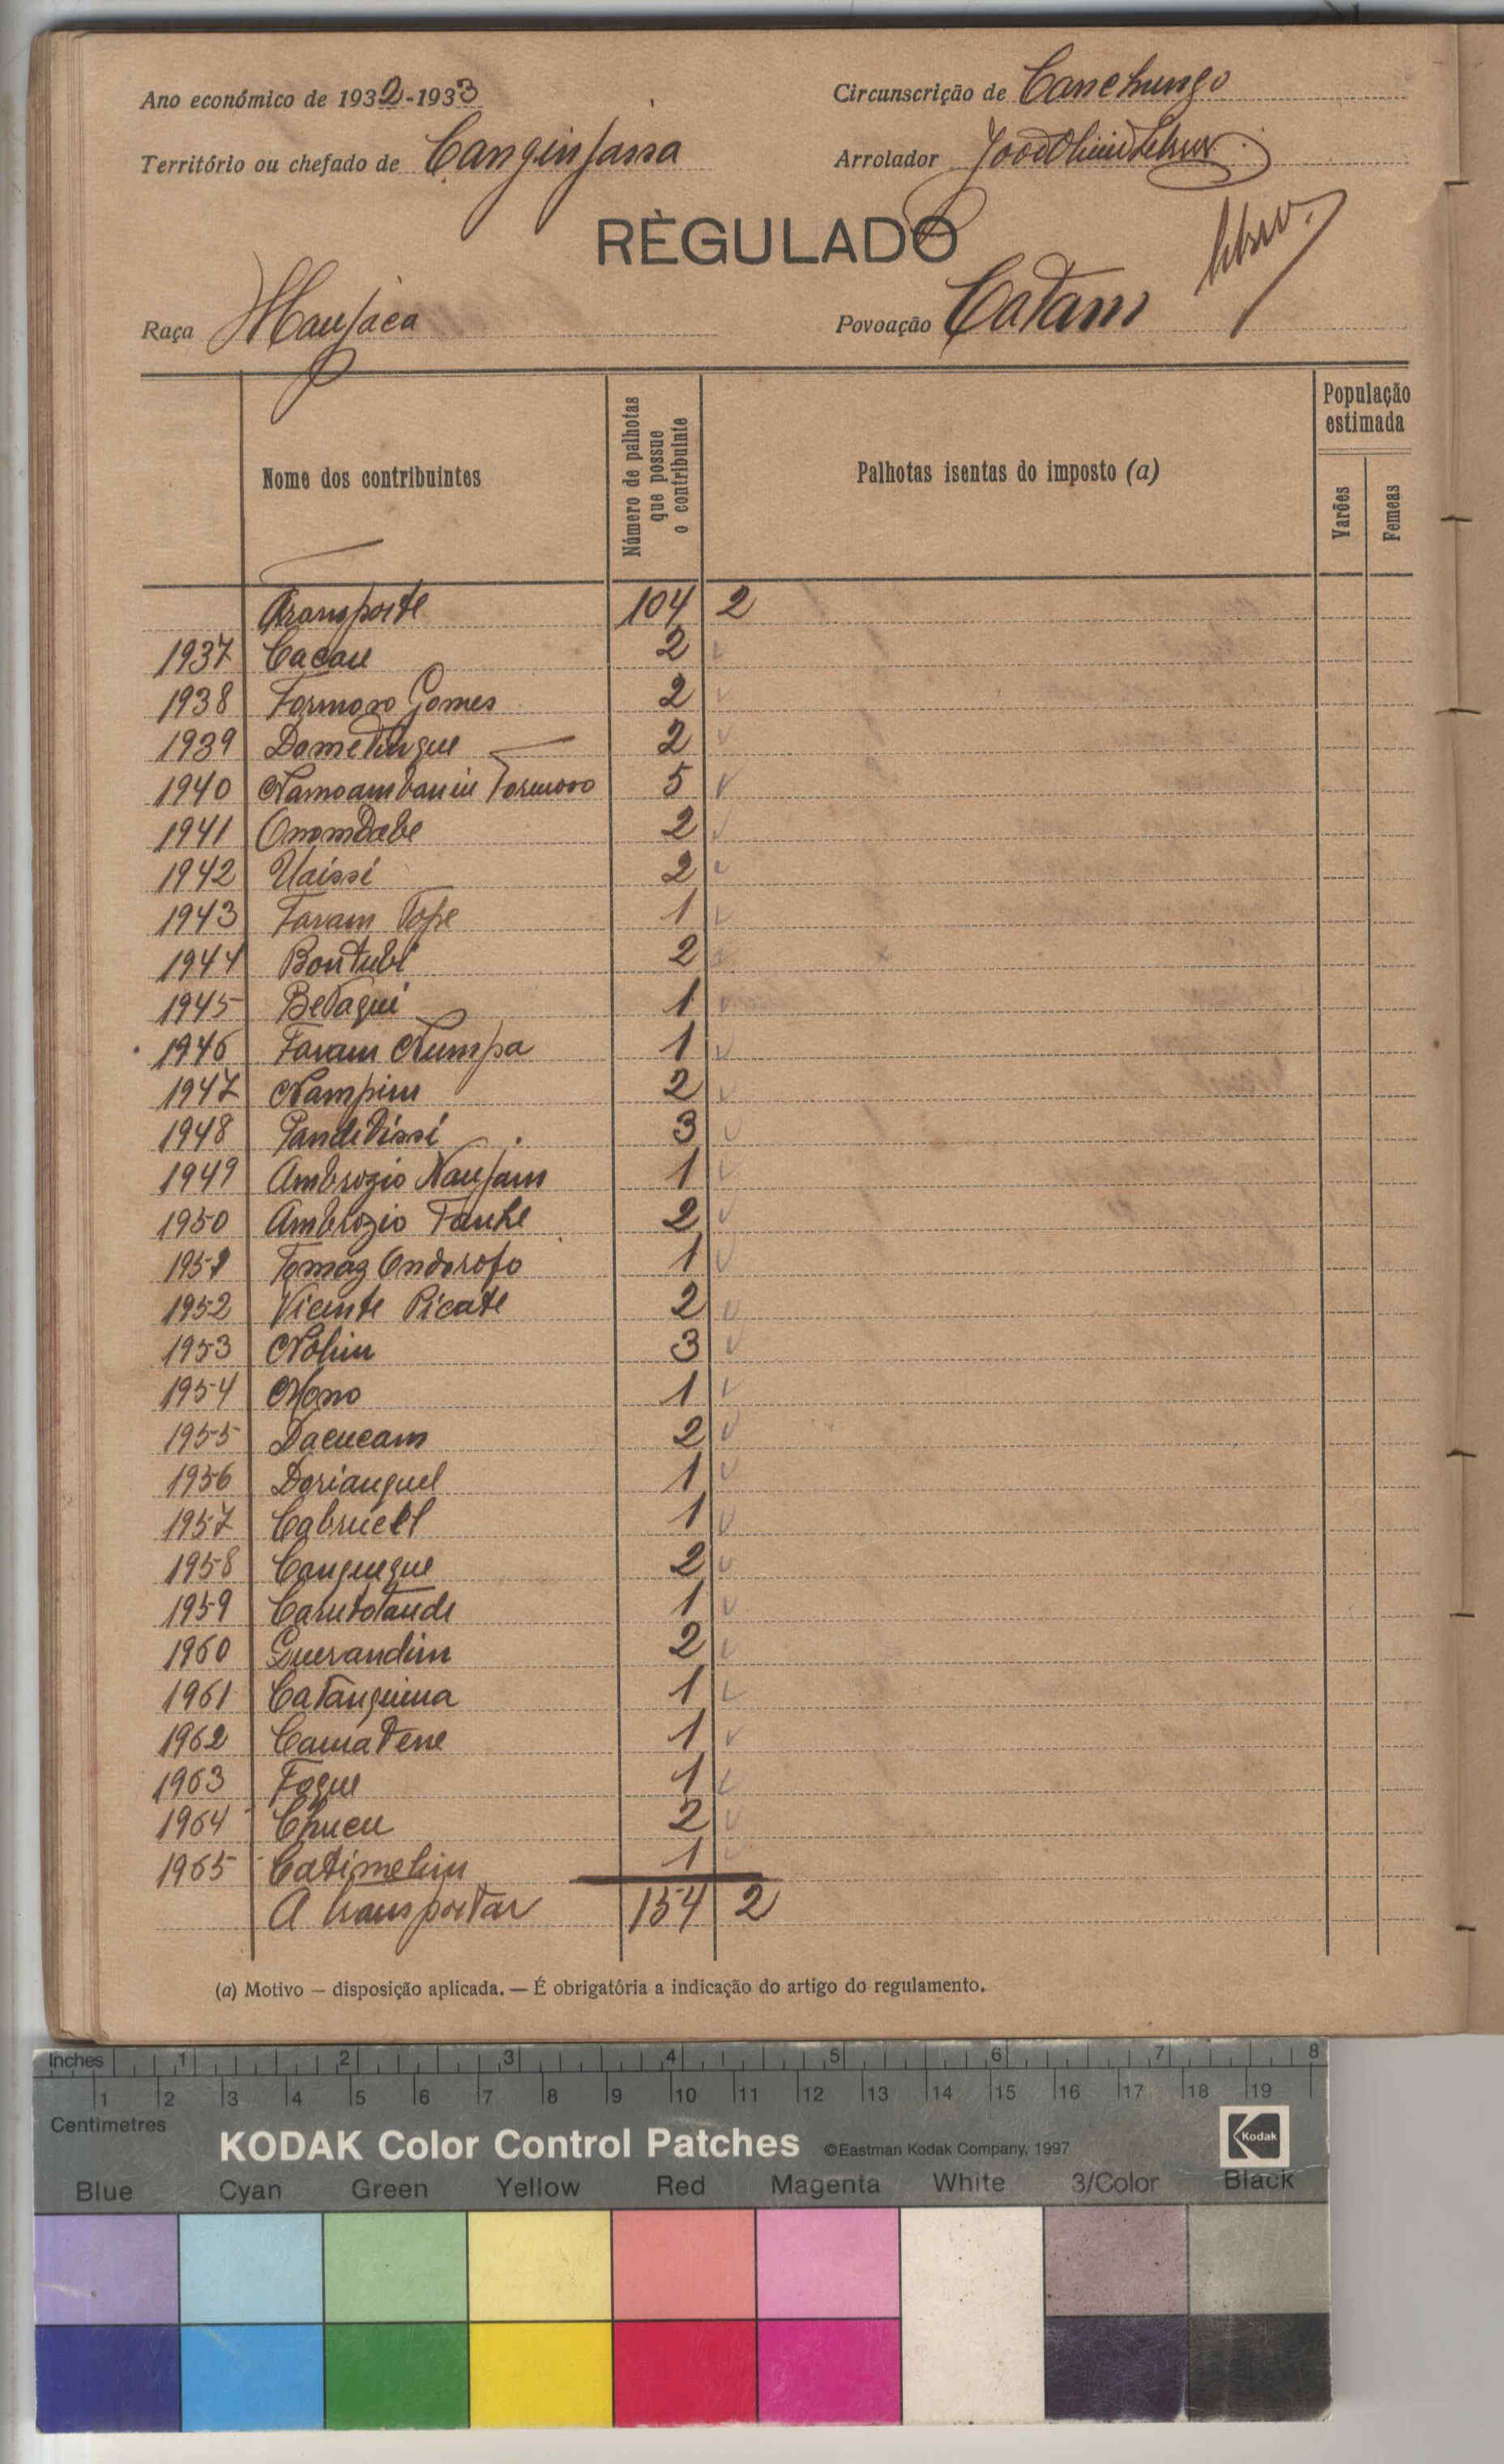 Ano económico de 1932-1933
Circunscrição de Canchungo
Território ou chefado de Canginjassa
Arrolador
RÈGULADO
Raça Manjaca
Povoação Catam
Nome dos contribuintes
Número de palhotas que possue o contribuinte
Palhotas isentas do imposto (a)
População estimada
Varões
Femeas
Transporte 104 2
1937 Cacau 2
1938 Formoso Gomes 2
1939 Dometingue 2
1940 Formoso 5
1941 Onomdabe 2
1942 Uaissi 2
1943 Favam Pope 1
1944 Bontubi 2
1945 Betaqui 1
1946 Favam Numpa 1
1947 Nampim 2
1948 Pandetissi 3
1949 Ambrozio Naufam 1
1950 Ambrozio Fanhe 2
1951 Tomaz Ondorofo 1
1952 Vicente Picate 2
1953 Nohin 3
1954 Mono 1
1955 Dacucam 2
1956 Dorianguel 1
1957 Cabriell 1
1958 Canguegue 2
1959 Carutotande 1
1960 Guerandim 2
1961 Catanguina 1
1962 Camatene 1
1963 Fogue 1
1964 Chucu 2
1965 Catimehin 1
A transportar 154 2
(a) Motivo — disposição aplicada. — É obrigatória a indicação do artigo do regulamento.
Inches 1 2 3 4 5 6 7 8
1 2 3 4 5 6 7 8 9 10 11 12 13 14 15 16 17 18 19
Centimetres
KODAK Color Control Patches ©Eastman Kodak Company, 1997 Kodak
Blue Cyan Green Yellow Red Magenta White 3/Color Black